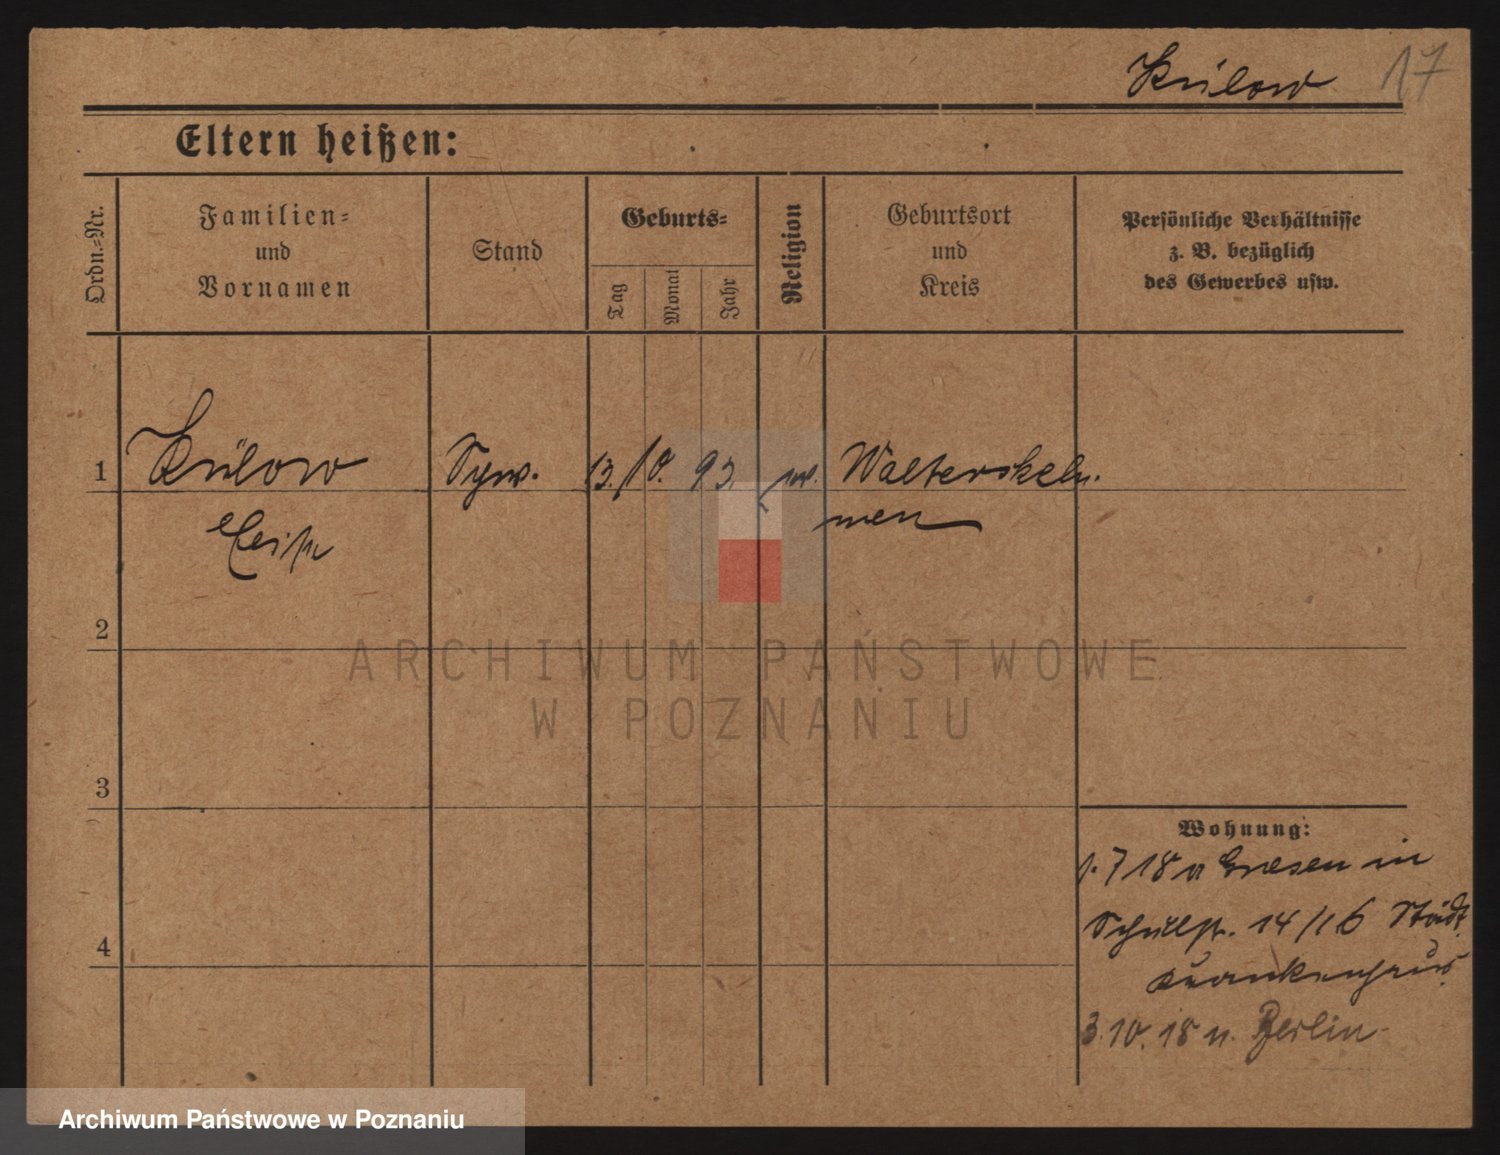 Külow 17
Eltern heißen:
Ordn.=Nr.
Familien=
und
Vornamen
Stand
Geburts=
Tag
Monat
Jahr
Religion
Geburtsort
und
Kreis
Persönliche Verhältnisse
z. B. bezüglich
des Gewerbes usw.
1 Külow 13. 10. 93. Walterskeh-
men
2
ARCHIWUM PAŃSTWOWE
W POZNANIU
3
Wohnung:
1. 7 18 v Gnesen in
Schulstr. 14/16 Städt.
4
Krankenhaus
3. 10. 18 n. Berlin
Archiwum Państwowe w Poznaniu